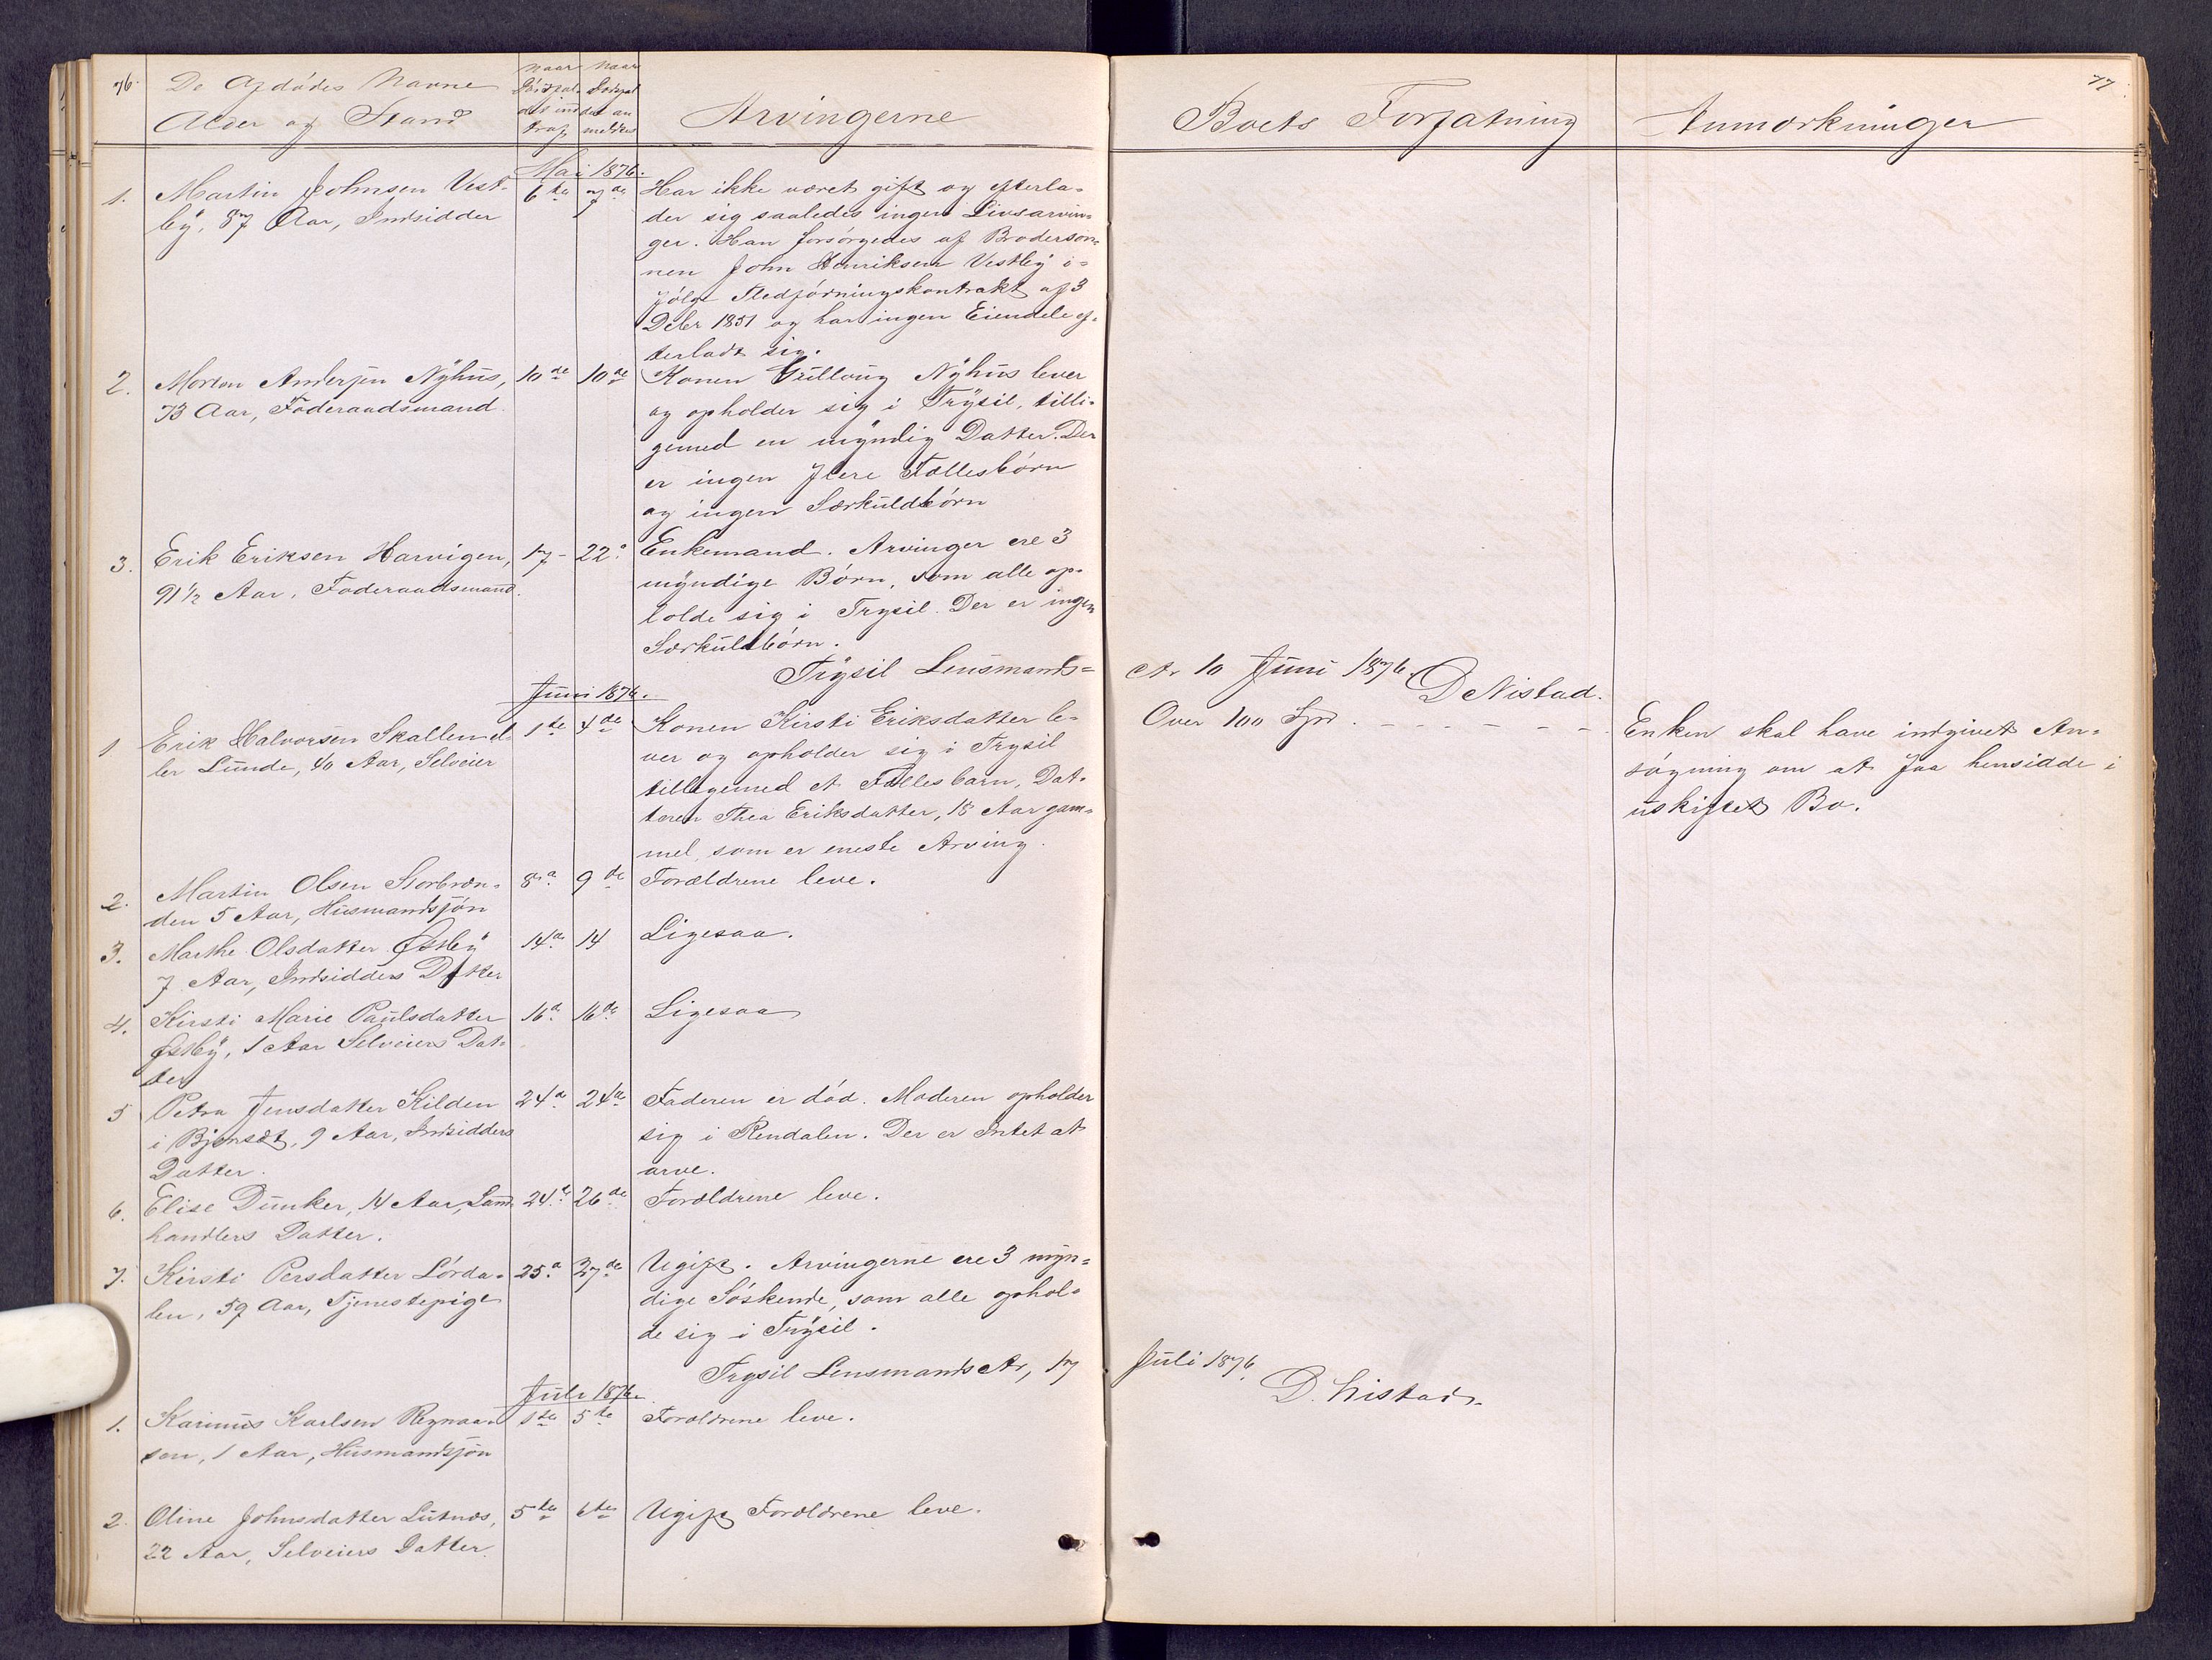 76.
De Afdödes Navne
Alder og Stand
Naar Dödsfaldet indtraf
Naar Dödsfaldet anmeldtes
Arvingerne
Mai 1876.
1. Martin Johnsen Vest-
by, 87 Aar, Indsidder
6te 7de
Har ikke været gift og efterla-
der sig saaledes ingen Livsarvin-
ger. Han forsörgedes af Brodersön-
nen John Henriksen Vestby i-
fölge Fledföringskontrakt af 3
Decbr 1851 og har ingen Eiendele ef-
terladt sig.
2. Morten Andersen Nyhus,
73 Aar, Föderaadsmand.
10de 10de
Konen Gulloug Nyhus lever
og opholder sig i Trysil, tilli-
gemed en myndig Datter. Der
er ingen flere Fællesbörn
og ingen Særkuldbörn
3. Erik Eriksen Harvigen,
91½ Aar, Foderaadsmand.
17- 22de
Enkemand. Arvinger ere 3
myndige Börn, som alle op-
holde sig i Trysil. Der er ingen
Særkuldbörn.
Trysil Lensmands-
Juni 1876.
1 Erik Halvorsen Skallen el-
ler Lunde, 40 Aar, Selveier
1te 4de
Konen Kirsti Eriksdatter le-
ver og opholder sig i Trysil
tilligemed et Fællesbarn, Dat-
teren Thea Eriksdatter, 18 Aar gam-
mel, som er eneste Arving.
2. Martin Olsen Storbræn-
den 5 Aar, Husmandssön
8de 9de
Forældrene leve.
3. Marthe Olsdatter Østby
7 Aar, Indsidders Datter
14de 14
Ligesaa.
4. Kirsti Marie Paulsdatter
Østby, 1 Aar Selveiers Dat-
ter
16de 16de
Ligesaa
5 Petra Jensdatter Kilden
i Bjønset, 9 Aar, Indsidders
Datter.
24de 24de
Faderen er död. Moderen opholder
sig i Rendalen. Der er Intet at
arve.
6. Elise Dunker, 14 Aar, Land
handlers Datter.
24de 26de
Forældrene leve.
7. Kirsti Persdatter Lörda-
len, 59 Aar, Tjenestepige
25de 27de
Ugift. Arvingerne ere 3 myn-
dige Söskende, som alle ophol-
de sig i Trysil.
Trysil Lensmands Ar, 17
Juli 1876.
1. Karinus Karlsen Regnaa-
sen, 1 Aar, Husmandssön
1te 5te
Forældrene leve.
2. Oline Johnsdatter Lutnæs,
22 Aar, Selveiers Datter.
5te 6te
Ugift Forældrene leve.
77.
Boets Forfatning
Anmærkninger
Ar 10 Juni 1876.
D Nistad.
Over 100 Spd. - - - - -
Enken skal have indgivet An-
sögning om at faa hensidde i
uskiftet Bo.
Juli 1876.
D. Nistad.